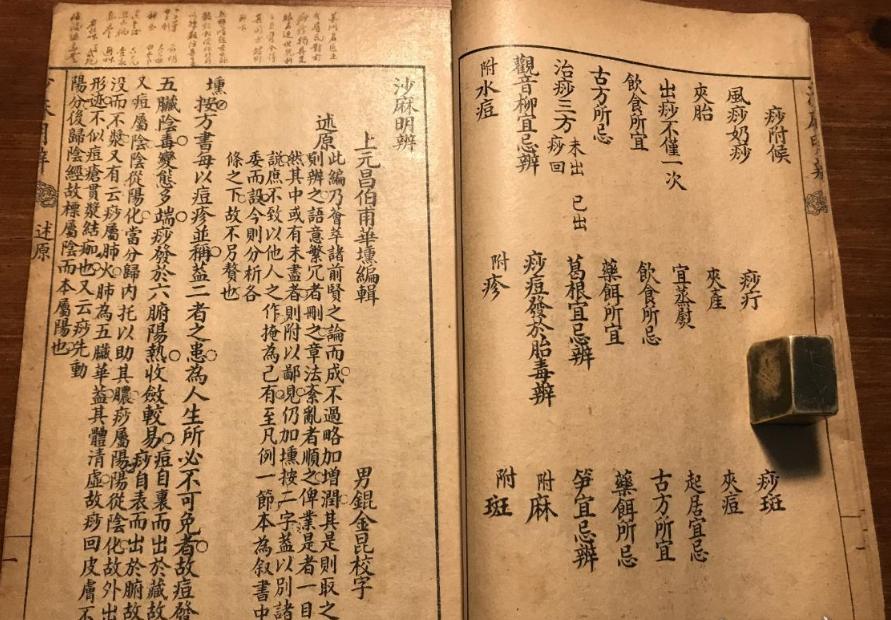 痧附候 痧疔 痧斑
風痧奶痧 夾產 夾痘
夾胎 宜蒸熨 起居宜忌
出痧不僅一次 飲食所忌 古方所宜
飲食所宜 藥餌所宜 藥餌所忌
古方所忌 葛根宜忌辨 笋宜忌辨
治痧三方 未出 已出 痧回 痧痘發於胎毒辨 附麻
觀音柳宜忌辨 附疹 附斑
附水痘
沙麻明辨
上元昌伯甫華壎編輯 男錕金昆校字
述原 此編乃薈萃諸前賢之論而成不過略加增潤其是則取之
則辨之語意繁冗者刪之章法紊亂者順之俾業是者一目
然其中或有未盡者則附以鄙見仍加壎按二字蓋以別諸
謊庶不致以他人之作掩為己有至凡例一節本為叙書中
委而設今則分析各
條之下故不另贅也
壎按方書每以痘疹並稱蓋二者之患為人生所必不可免者故痘發
五臟陰毒變態多端痧發於六腑陽熱收斂較易痘自裏而出於藏故
又痘屬陰陰從陽化當分歸內托以助其膿痧屬陽陽從陰化故外出
没而不漿又有云痧屬肺火肺為五臟華蓋其體清虛故痧回皮膚不
形迹不似痘瘡貫漿結痂也又云痧先動
陽分後歸陰經故標屬陰而本屬陽也
沙麻明辨 述原 一